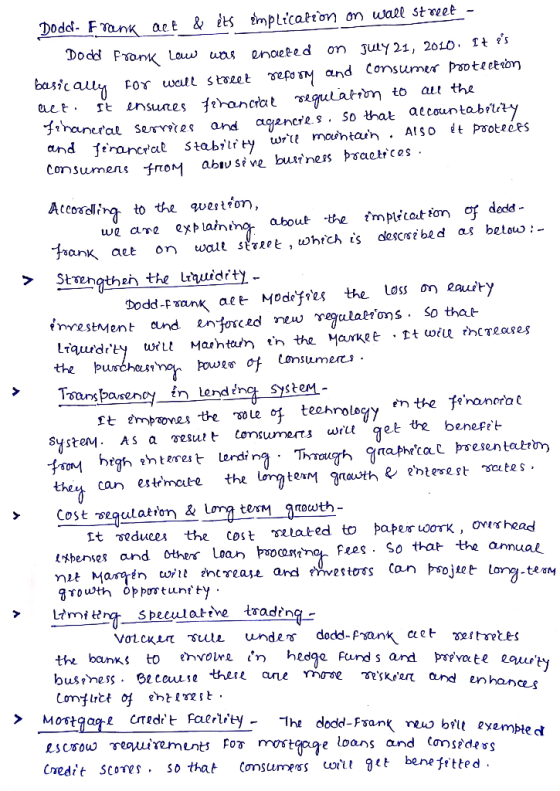 Dodd-Frank act & its implication on wall street -
Dodd Frank Law was enacted on July 21, 2010. It is
basically for wall street reform and consumer protection
act. It ensures financial regulation to all the
financial services and agencies. so that accountability
and financial stability will maintain. Also it protects
consumers from abusive business practices.
According to the question,
we are explaining about the implication of dodd-
frank act on wall street, which is described as below:-
> Strengthen the Liquidity -
Dodd-Frank act Modifies the loss on equity
investment and enforced new regulations. so that
liquidity will Maintain in the Market. It will increases
the purchasing power of consumers.
> Transparency in Lending system -
It improves the role of technology in the financial
system. As a result consumers will get the benefit
from high interest lending. Through graphical presentation
they can estimate the longterm growth & interest rates.
> Cost regulation & Long term growth -
It reduces the cost related to paperwork, overhead
expenses and other loan processing fees. so that the annual
net Margin will increase and investors can project long-term
growth opportunity.
> Limiting speculative trading -
Volcker rule under dodd-Frank act restricts
the banks to involve in hedge funds and private equity
business. Because these are more riskier and enhances
conflict of interest.
> Mortgage Credit Facility - The dodd-Frank new bill exempted
escrow requirements for mortgage loans and considers
credit scores. so that consumers will get benefitted.